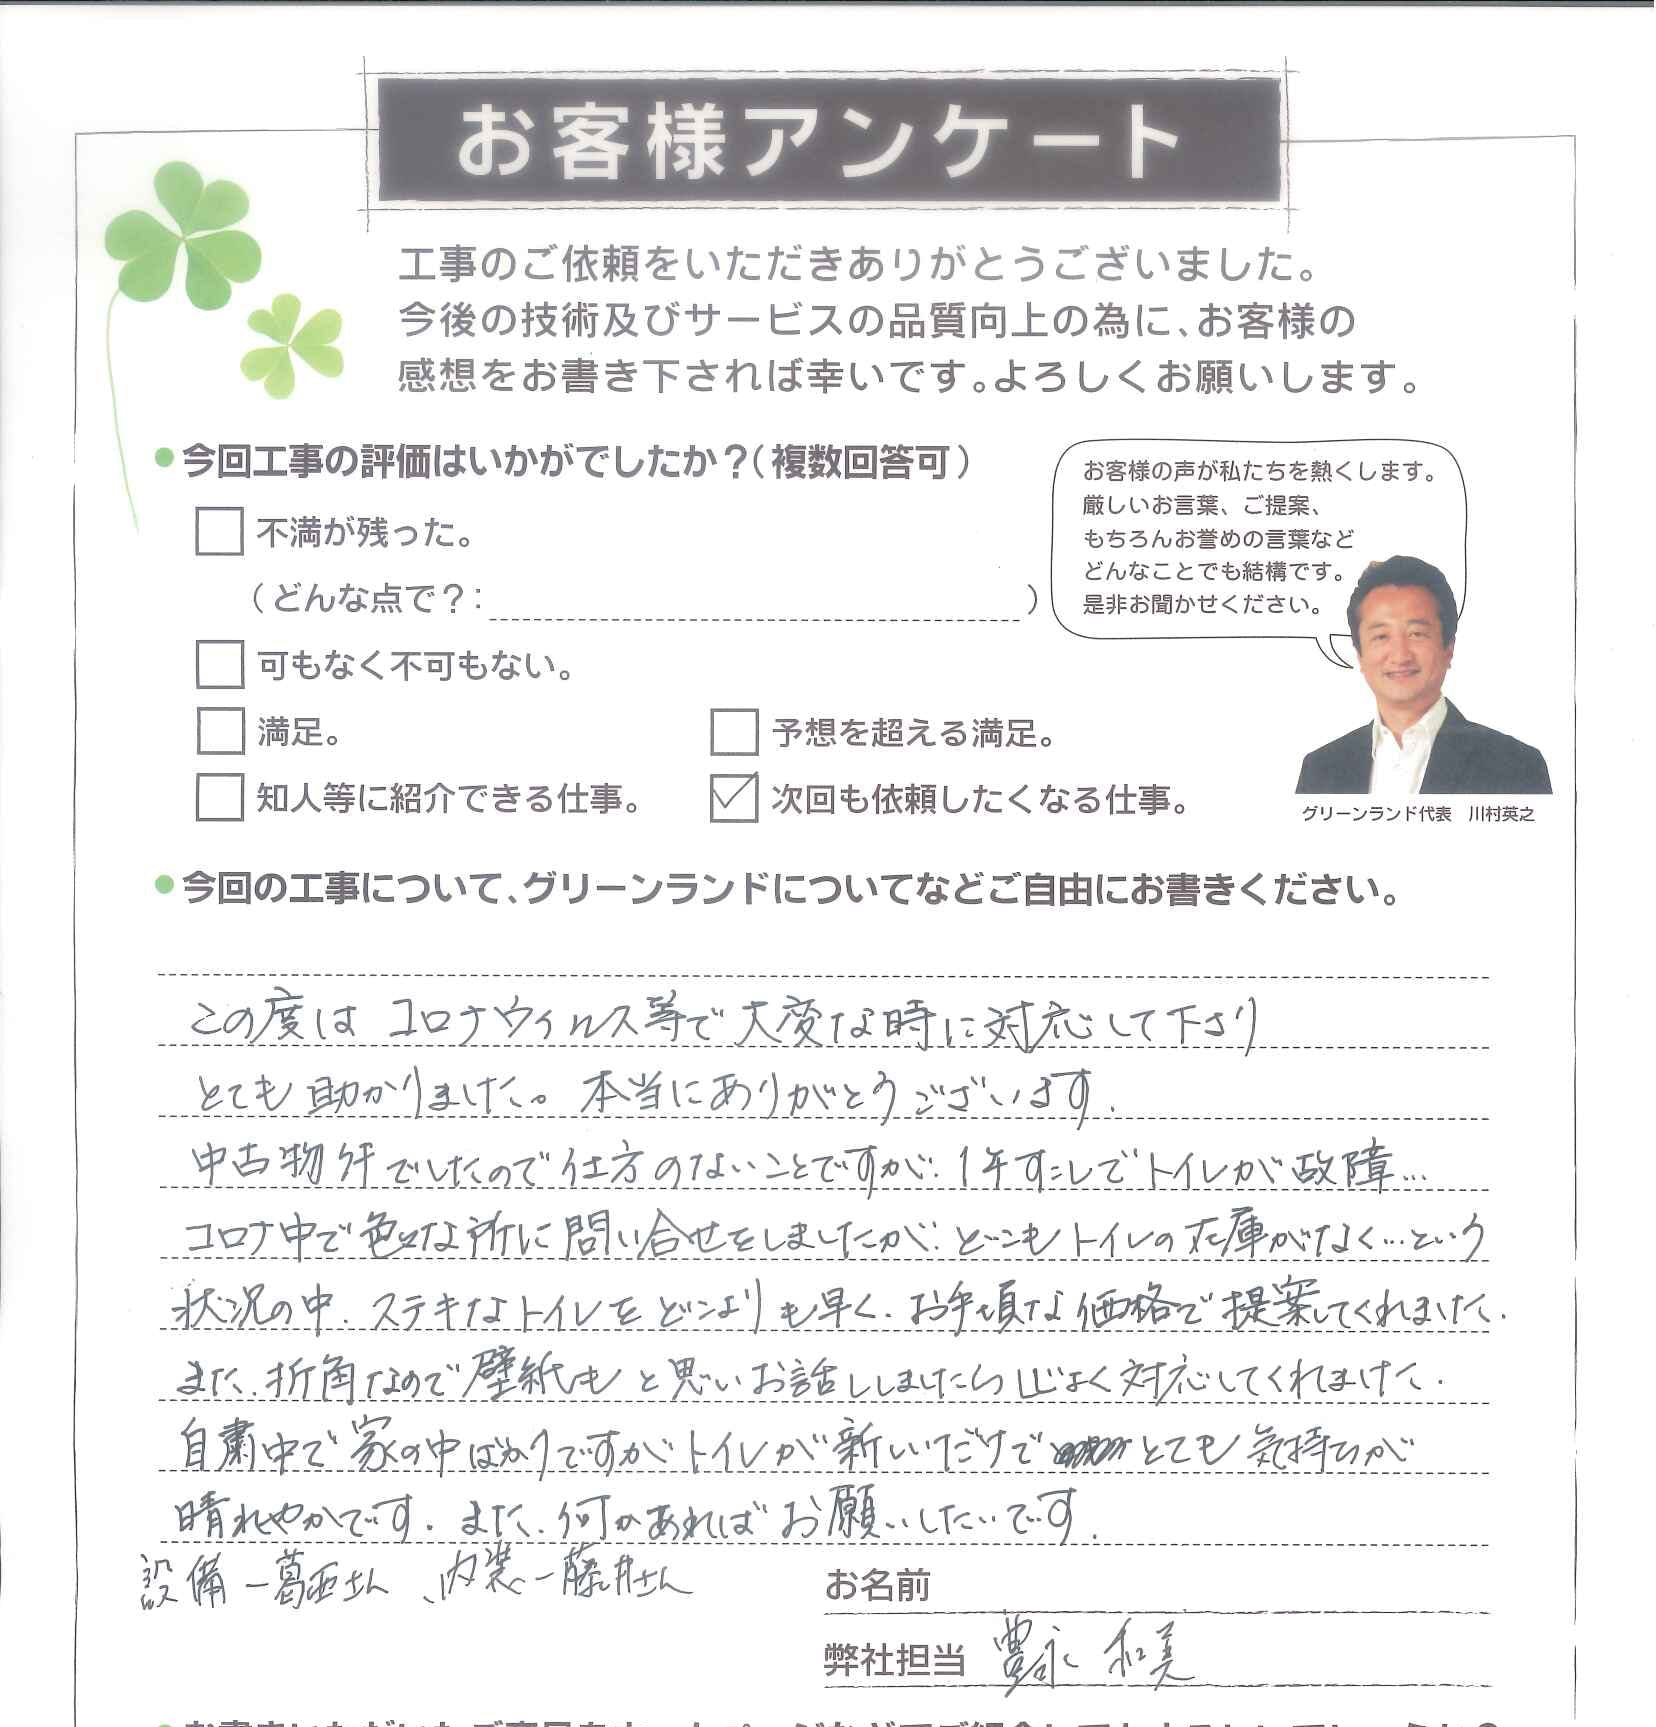 お客様アンケート
工事のご依頼をいただきありがとうございました。
今後の技術及びサービスの品質向上の為に、お客様の
感想をお書き下されば幸いです。よろしくお願いします。
●今回工事の評価はいかがでしたか？（複数回答可）
不満が残った。
（どんな点で？：　）
可もなく不可もない。
満足。
予想を超える満足。
知人等に紹介できる仕事。
次回も依頼したくなる仕事。
お客様の声が私たちを熱くします。
厳しいお言葉、ご提案、
もちろんお誉めの言葉など
どんなことでも結構です。
是非お聞かせください。
グリーンランド代表　川村英之
●今回の工事について、グリーンランドについてなどご自由にお書きください。
この度は コロナウィルス等で大変な時に対応して下さり
とても助かりました。本当にありがとうございます.
中古物件でしたので仕方のないことですが. 1年すこしでトイレが故障…
コロナ中で色々な所に問い合せをしましたが. どこもトイレの在庫がなく…という
状況の中. ステキなトイレをどこよりも早く. お手頃な価格で提案してくれました.
また. 折角なので壁紙もと思いお話ししましたら 心よく対応してくれました.
自粛中で家の中ばかりですがトイレが新しいだけで とても気持ちが
晴れやかです. また. 何かあればお願いしたいです.
設備ー葛西さん、内装ー藤井さん
お名前
弊社担当 豊永 和美